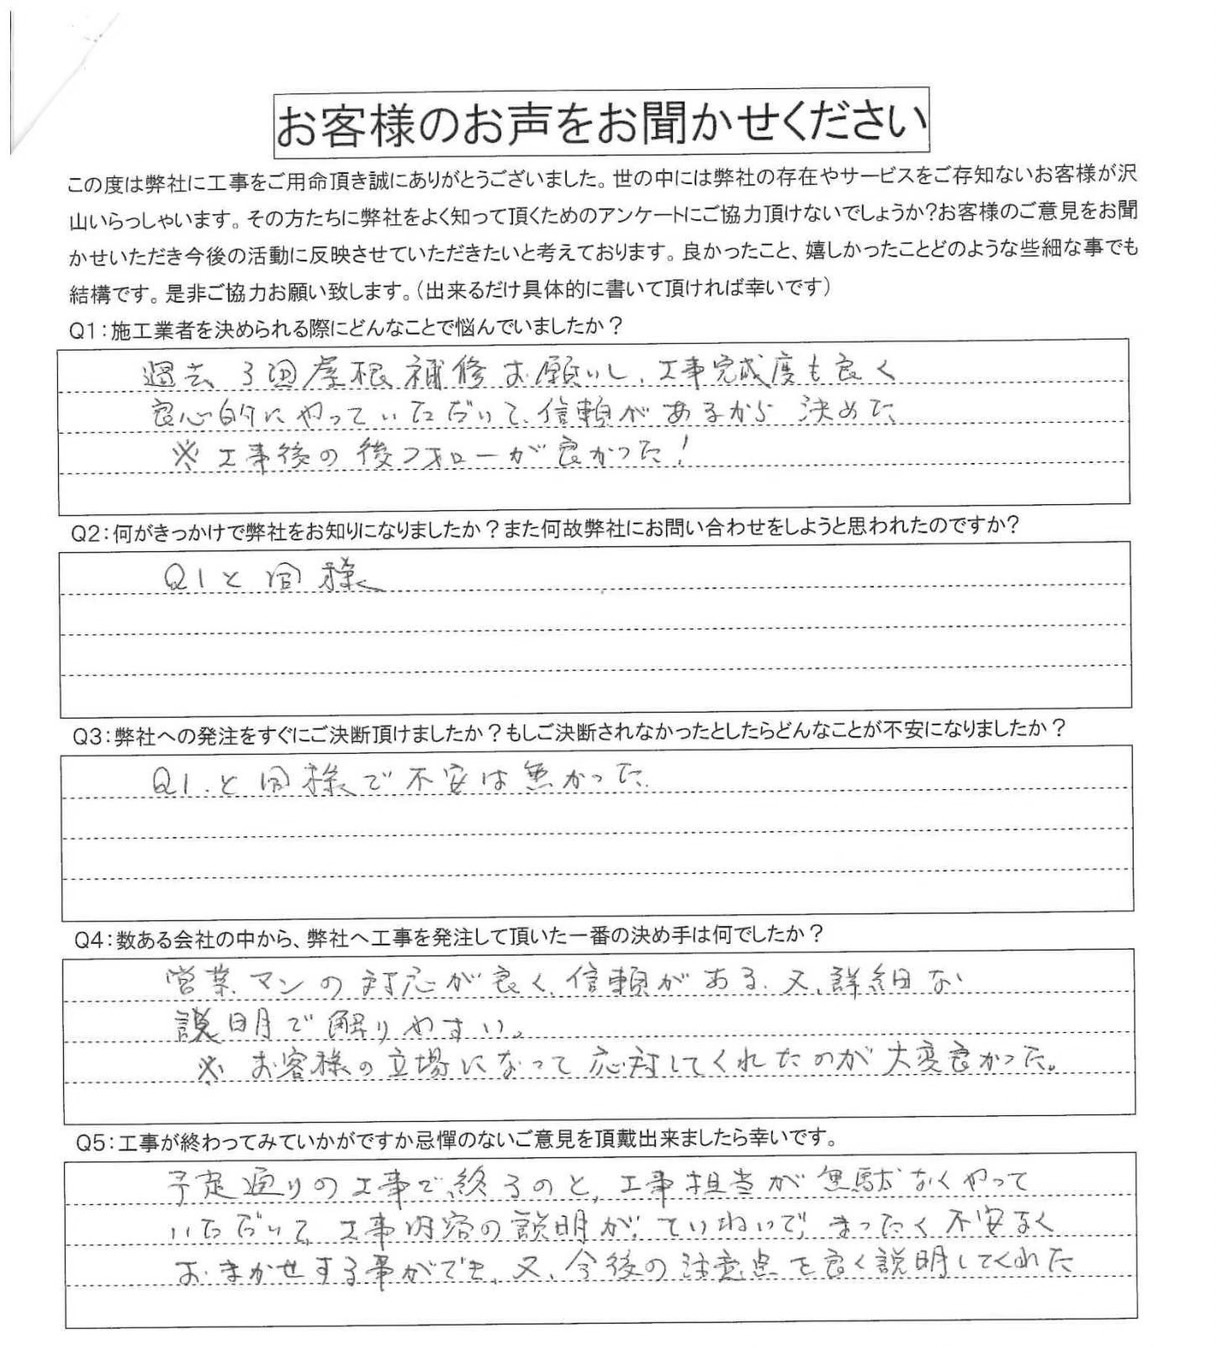 お客様のお声をお聞かせください
この度は弊社に工事をご用命頂き誠にありがとうございました。世の中には弊社の存在やサービスをご存知ないお客様が沢
山いらっしゃいます。その方たちに弊社をよく知って頂くためのアンケートにご協力頂けないでしょうか?お客様のご意見をお聞
かせいただき今後の活動に反映させていただきたいと考えております。良かったこと、嬉しかったことどのような些細な事でも
結構です。是非ご協力お願い致します。(出来るだけ具体的に書いて頂ければ幸いです)
Q1:施工業者を決められる際にどんなことで悩んでいましたか?
過去、3回屋根補修お願いし、工事完成度も良く
良心的にやっていただいて、信頼があるから決めた
※工事後の後フォローが良かった!
Q2:何がきっかけで弊社をお知りになりましたか?また何故弊社にお問い合わせをしようと思われたのですか?
Q1と同様
Q3:弊社への発注をすぐにご決断頂けましたか?もしご決断されなかったとしたらどんなことが不安になりましたか?
Q1.と同様で不安は無かった.
Q4:数ある会社の中から、弊社へ工事を発注して頂いた一番の決め手は何でしたか?
営業マンの対応が良く、信頼がある、又、詳細な
説明で解りやすい。
※お客様の立場になって応対してくれたのが大変良かった。
Q5:工事が終わってみていかがですか忌憚のないご意見を頂戴出来ましたら幸いです。
予定通りの工事で終るのと、工事担当が無駄なくやって
いただいて、工事内容の説明が、ていねいで、まったく不安なく
おまかせする事ができ、又、今後の注意点を良く説明してくれた